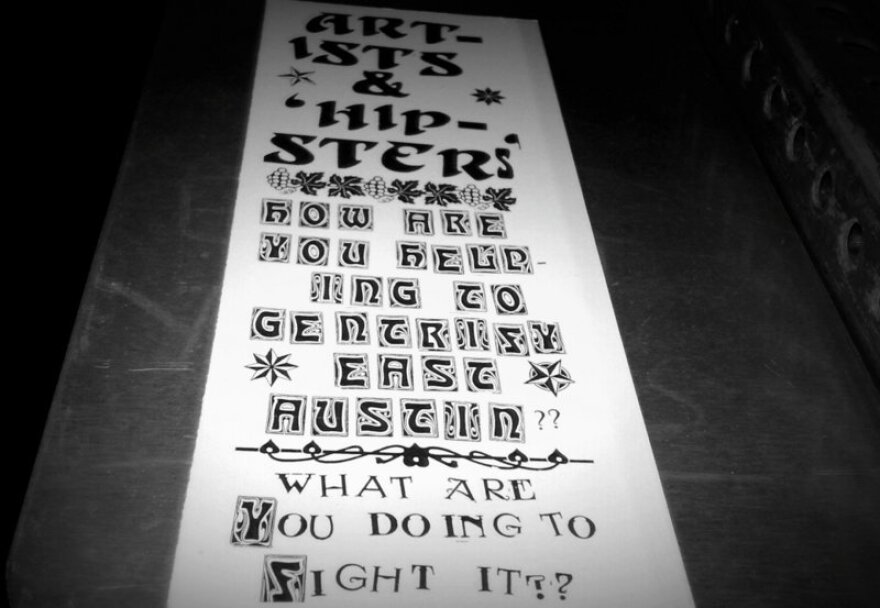 ART-
ISTS
&
'HIP-
STERS'
HOW ARE
YOU HELP-
ING TO
GENTRIFY
EAST
AUSTIN??
WHAT ARE
YOU DOING TO
FIGHT IT???